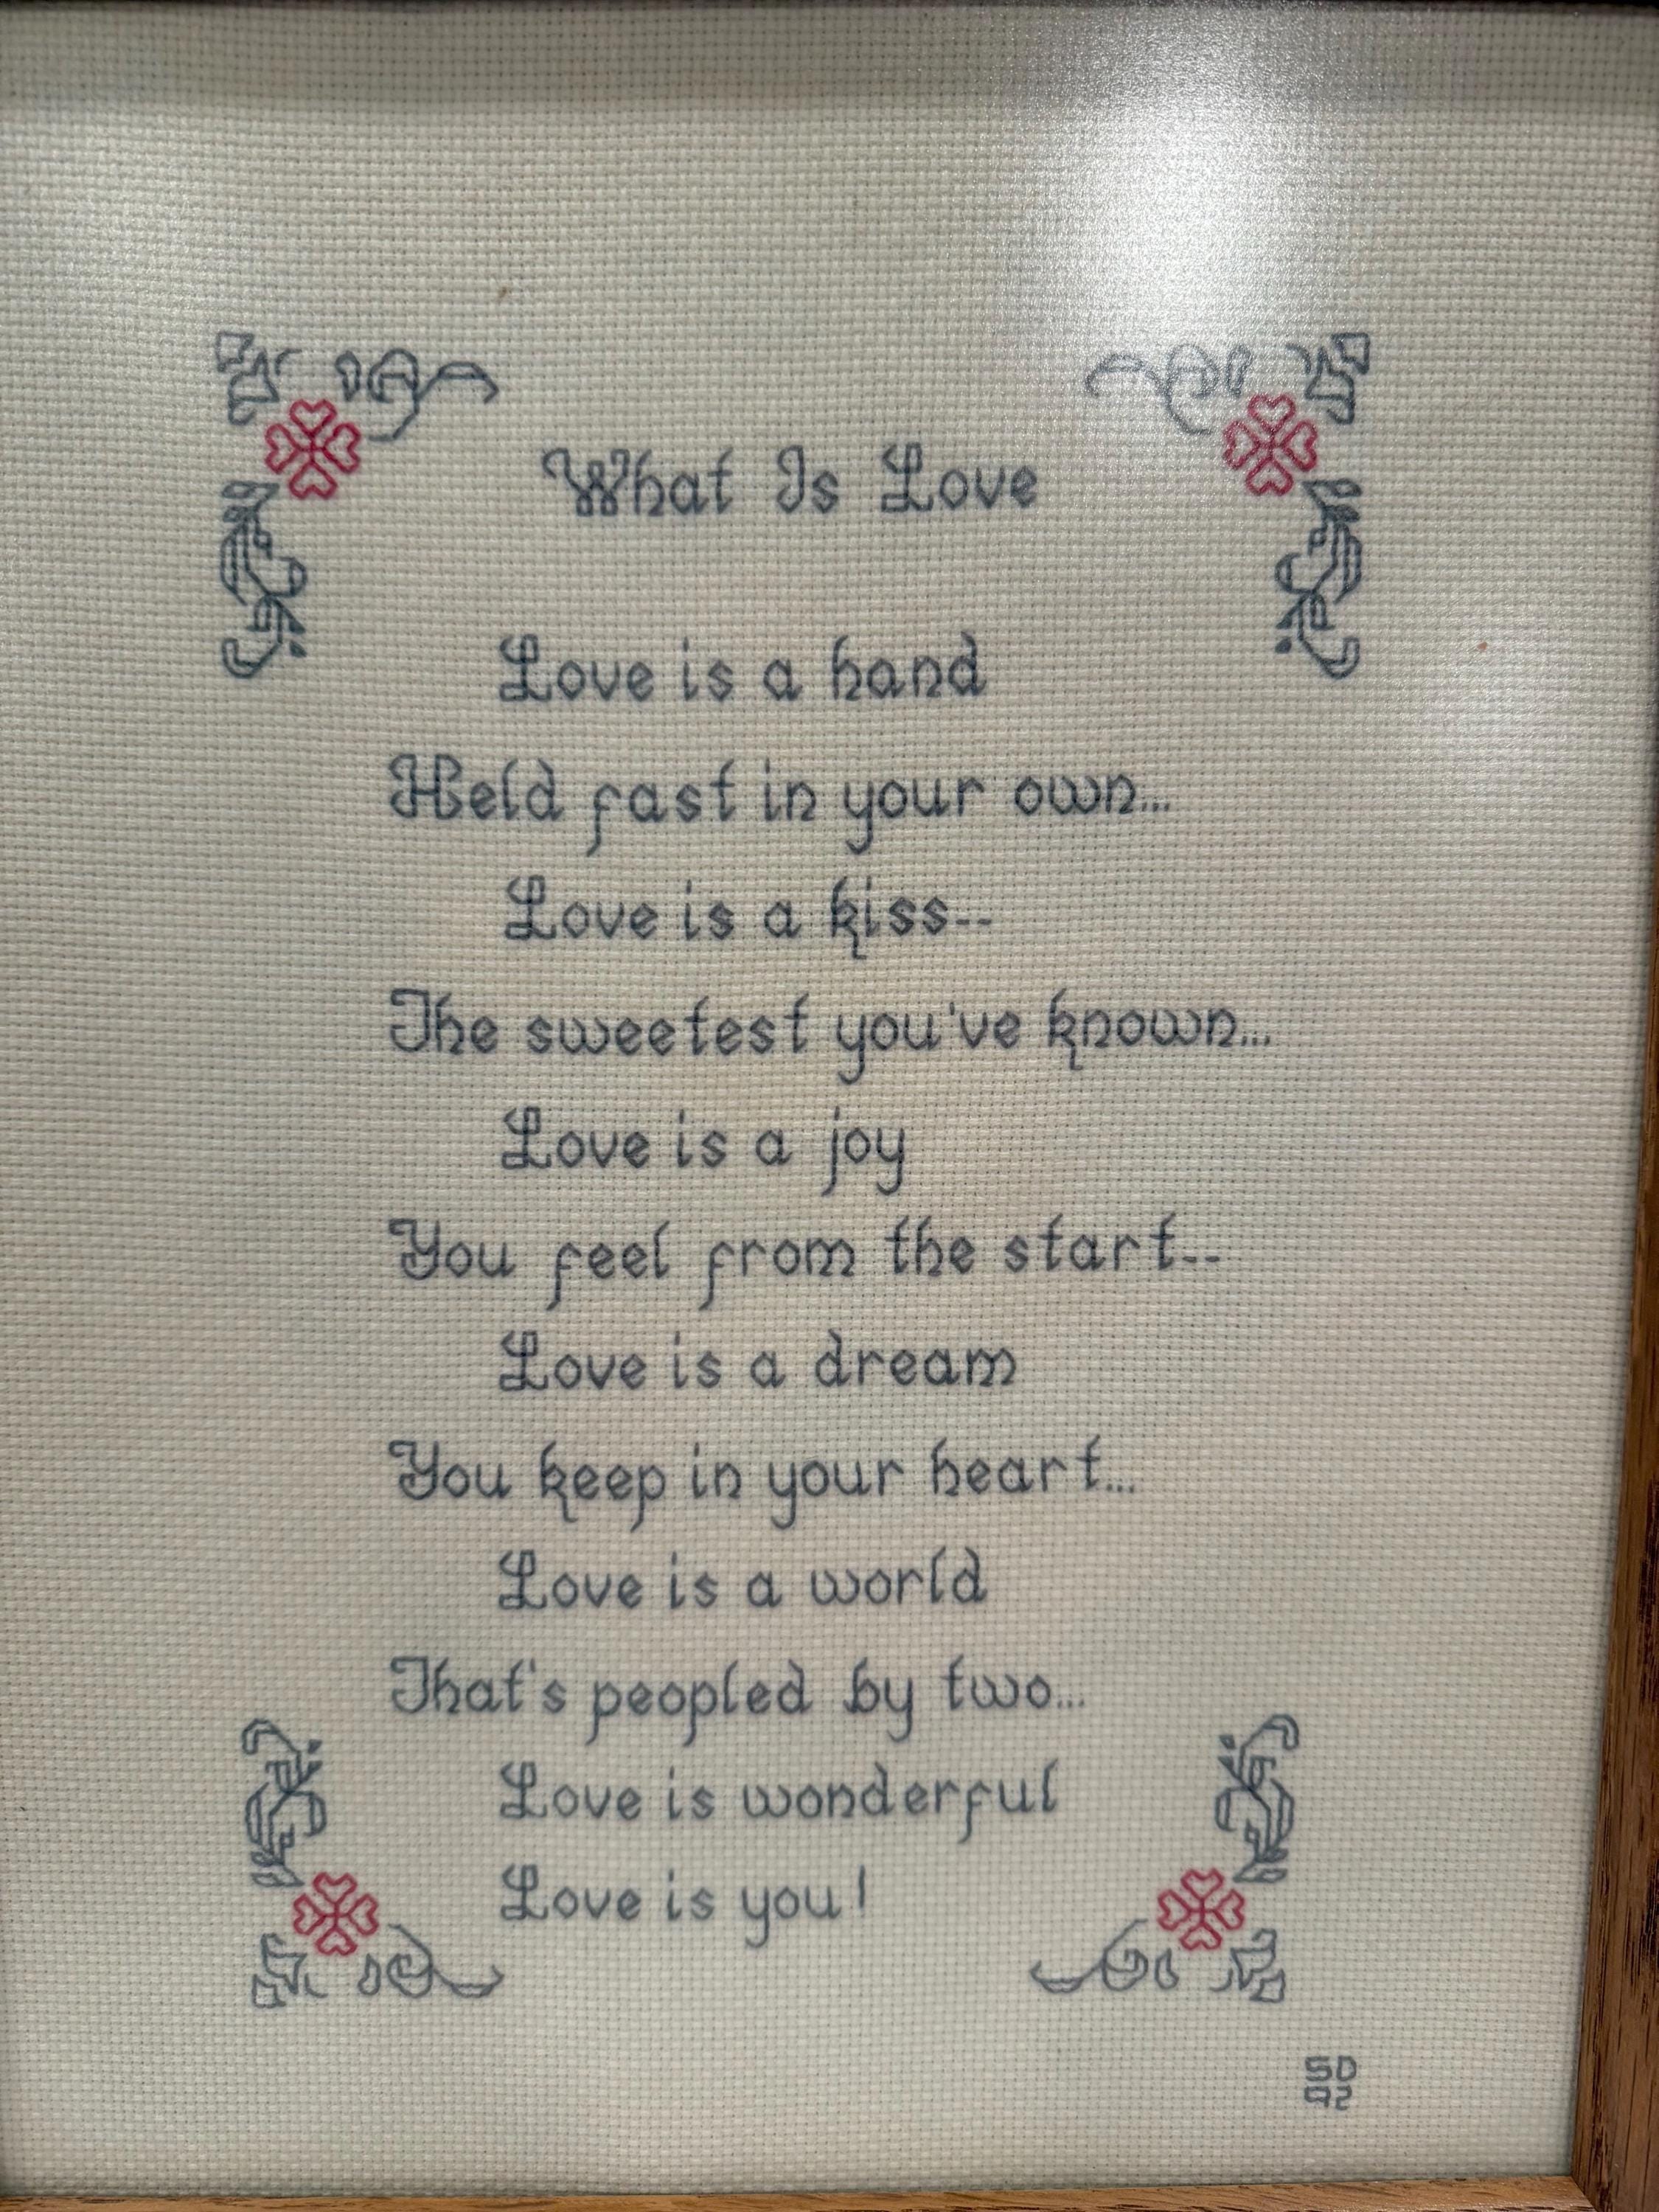 What Is Love
Love is a hand
Held fast in your own...
Love is a kiss--
The sweetest you've known...
Love is a joy
You feel from the start--
Love is a dream
You keep in your heart...
Love is a world
That's peopled by two...
Love is wonderful
Love is you!
SD
92